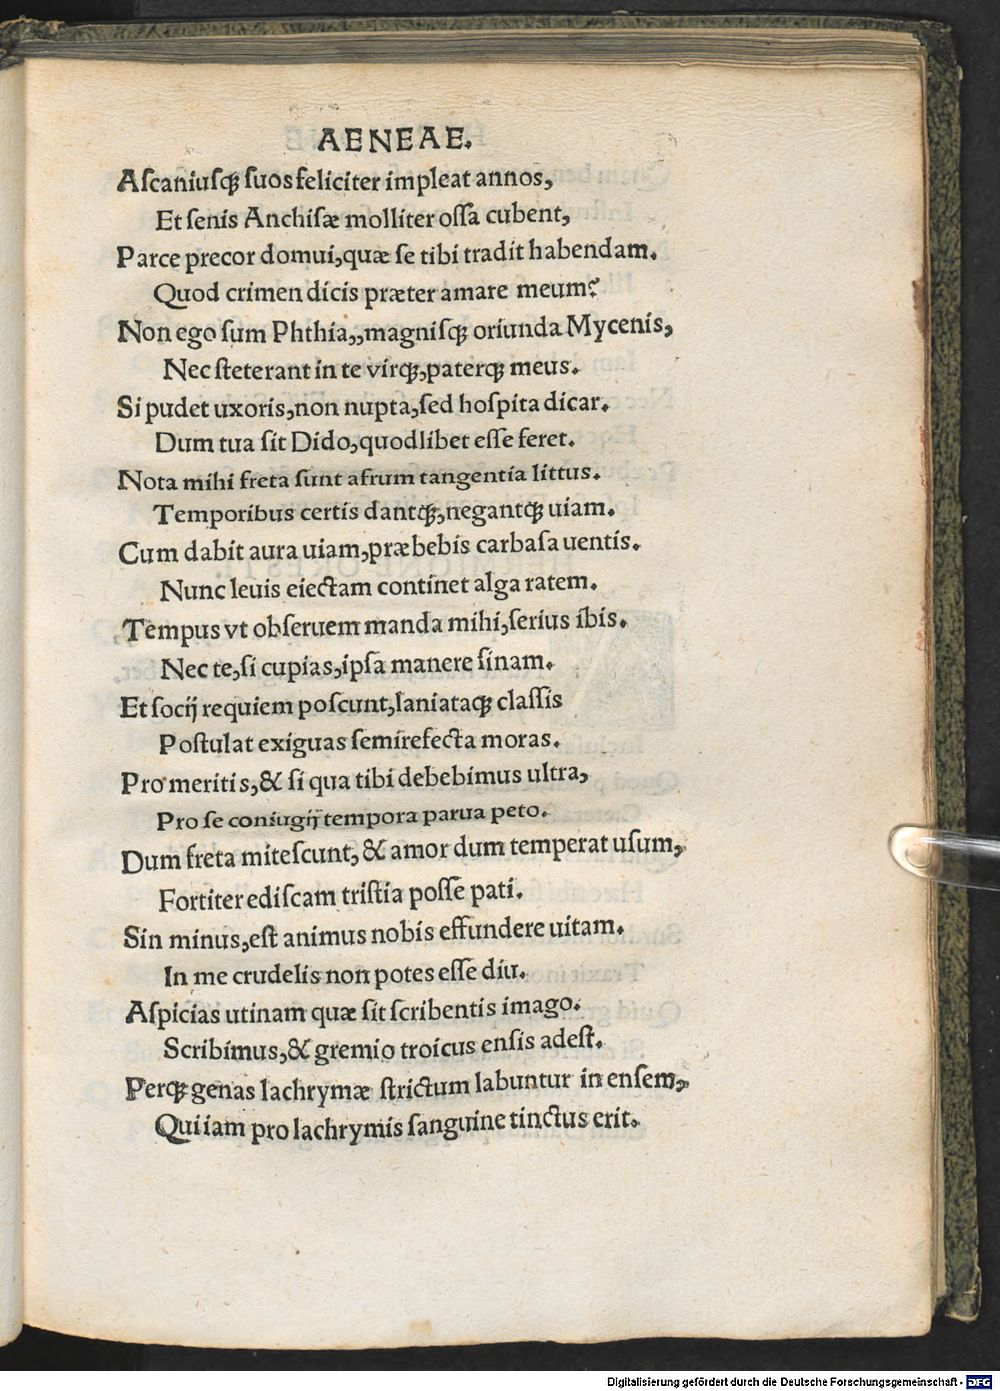 AENEAE.
Aſcaniuſqꝫ ſuos feliciter impleat annos,
Et ſenis Anchiſæ molliter oſſa cubent,
Parce precor domui,quæ ſe tibi tradit habendam.
Quod crimen dicis præter amare meum?
Non ego ſum Phthia,,magniſqꝫ oriunda Mycenis,
Nec ſteterant in te virqꝫ,paterqꝫ meus.
Si pudet uxoris,non nupta,ſed hoſpita dicar.
Dum tua ſit Dido,quodlibet eſſe feret.
Nota mihi freta ſunt afrum tangentia littus.
Temporibus certis dantqꝫ,negantqꝫ uiam.
Cum dabit aura uiam,præbebis carbaſa uentis.
Nunc leuis eiectam continet alga ratem.
Tempus vt obſeruem manda mihi,ſerius ibis.
Nec te,ſi cupias,ipſa manere ſinam.
Et ſocij requiem poſcunt,laniataqꝫ claſſis
Poſtulat exiguas ſemirefecta moras.
Pro meritis,& ſi qua tibi debebimus ultra,
Pro ſe coniugij tempora parua peto.
Dum freta miteſcunt, & amor dum temperat uſum,
Fortiter ediſcam triſtia poſſe pati.
Sin minus,eſt animus nobis effundere uitam.
In me crudelis non potes eſſe diu.
Aſpicias utinam quæ ſit ſcribentis imago.
Scribimus,& gremio troicus enſis adeſt.
Perqꝫ genas lachrymæ ſtrictum labuntur in enſem,
Qui iam pro lachrymis ſanguine tinctus erit.
Digitalisierung gefördert durch die Deutsche Forschungsgemeinschaft - DFG